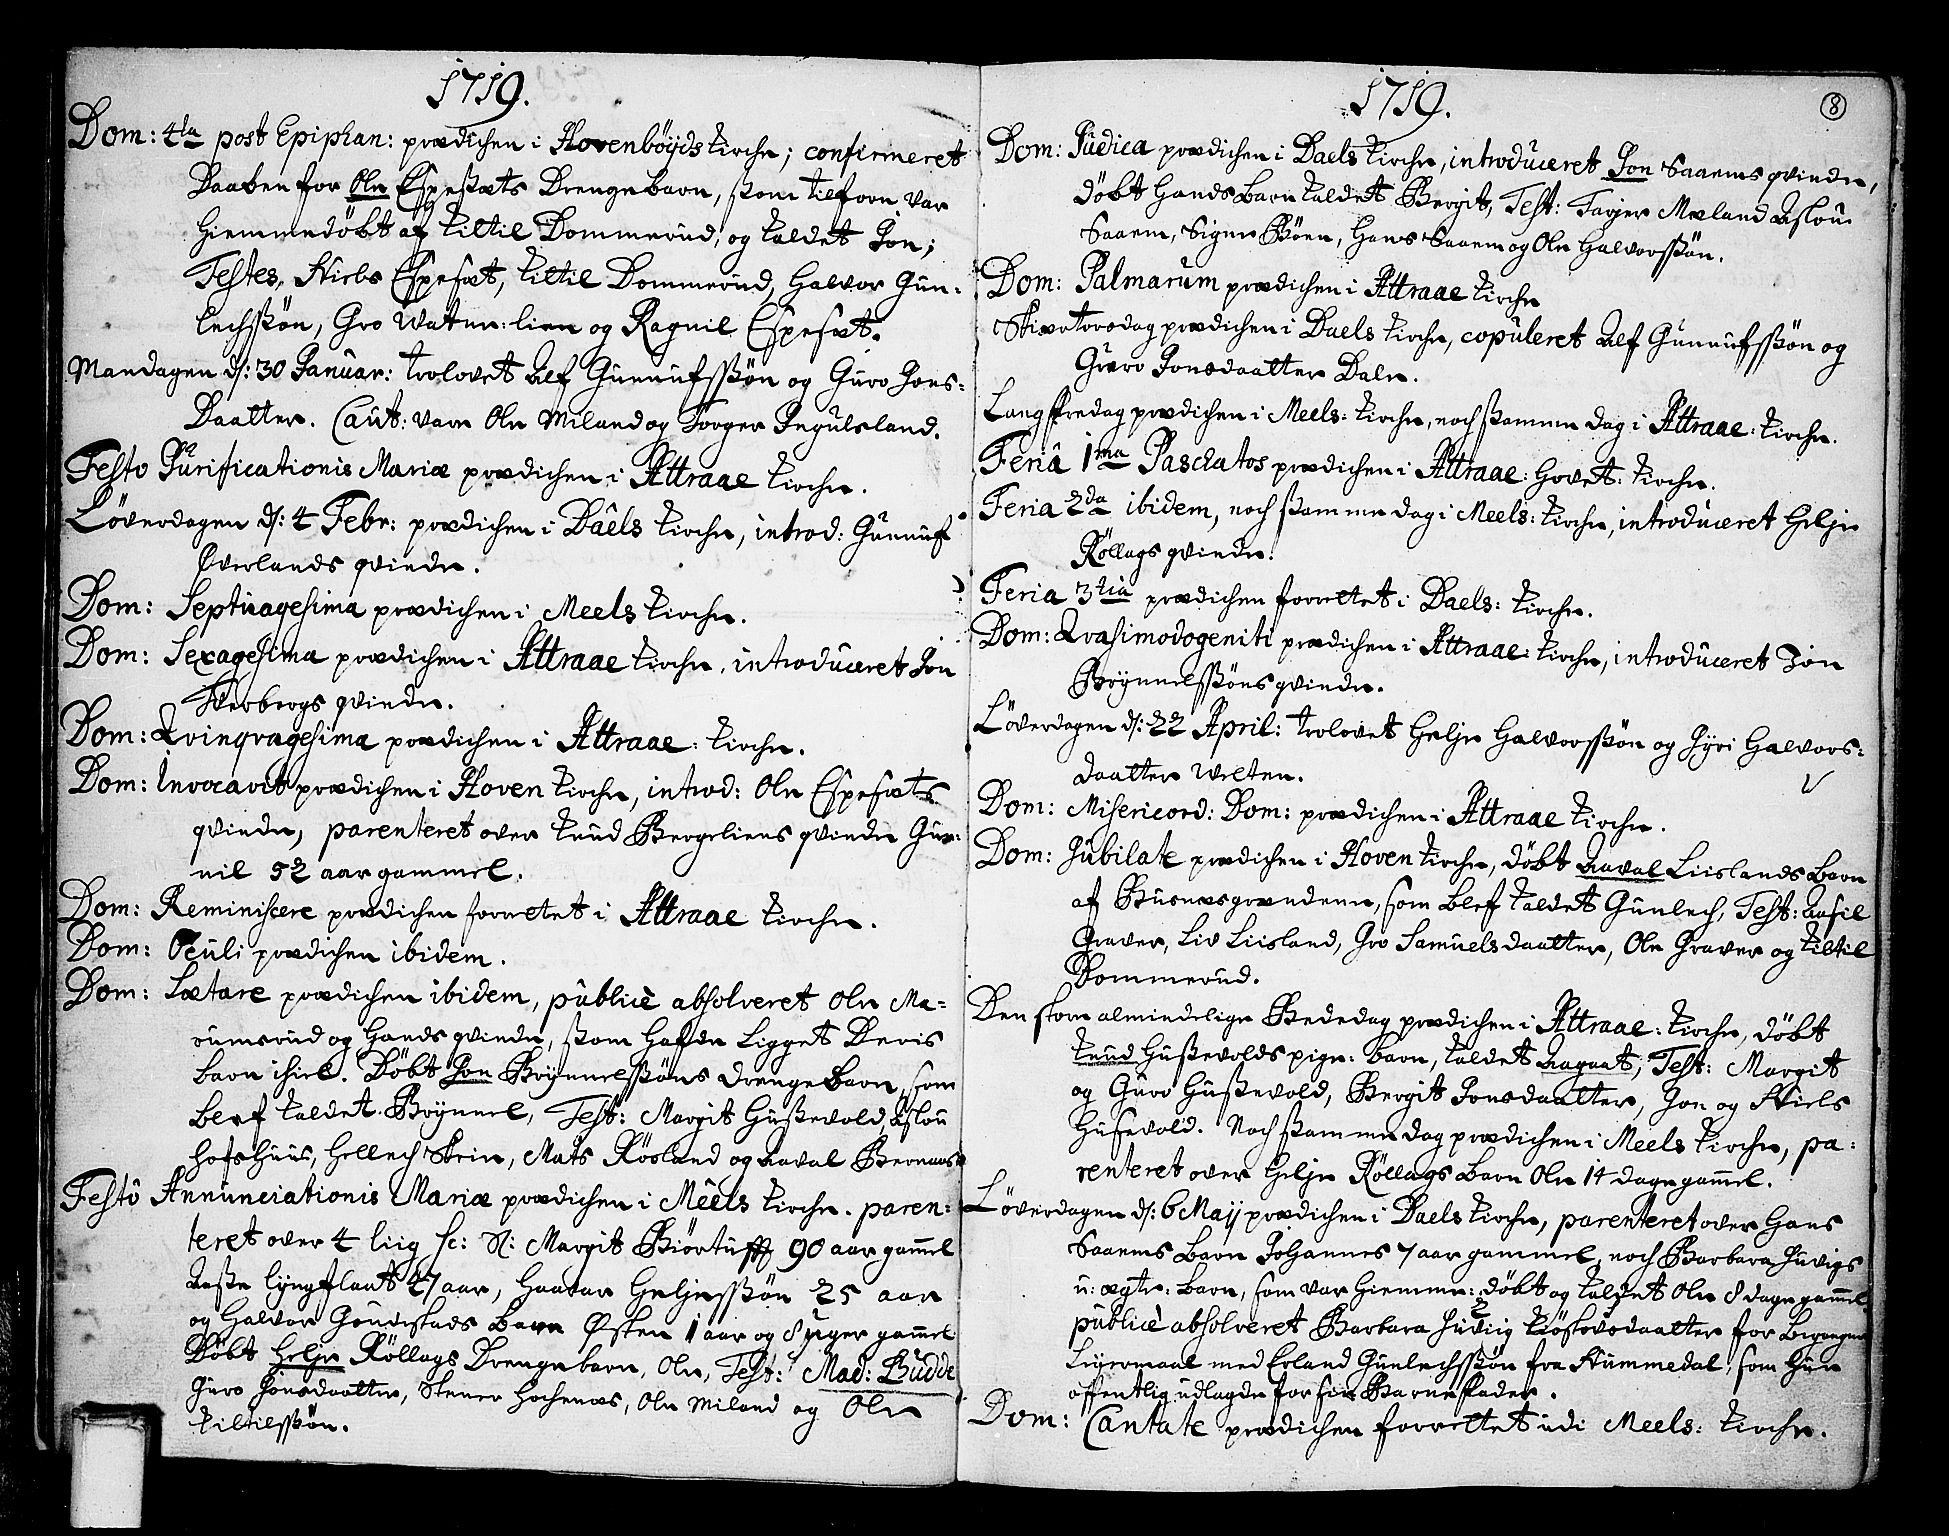 1719.
Dom: 4ta post Epiphan: prædichen i Hovenbøyds kirche; confirmeret
Daaben for Ole Espesæts Drengebarn, sßom tilforn var
hiemmedøbt af Kittil Dommerud, og kaldet Jon;
Testes, Kield Espesæt, Kittil Dommerud, Halvor Gun-
lechssøn, Gro Waten: lien og Ragnil Espesæt.
Mandagen d: 30 Januar: trolovet Alf Gunnufssøn og Guro Jons-
Daatter. Caut: vare Ole Miland og Torger Ingulsland.
Festo Purificationis Mariæ prædichen i Attraae kirche.
Løverdagen d: 4 Febr: prædichen i Daels kirche, introd: Gunnuf
Øverlands qvinde.
Dom: Septuagesima prædichen i Meels kirche.
Dom: Sexagesima prædichen i Attraae kirche, introduceret Jon
Verbergs qvinde.
Dom: Qvinqvagesima prædichen i Attraae: kirche.
Dom: Invocavit prædichen i Hoven kirche, introd: Ole Espesæts
qvinde, parenteret over Knud Bergeliens qvinde Gun-
nil 52 aar gammel.
Dom: Reminiscere prædichen forrettet i Attraae kirche.
Dom: Oculi prædichen ibidem.
Dom: Lætare prædichen ibidem, publicè absolveret Ole Ma-
rumsrud og hands qvinde, sßom hafde ligget Deris
barn ihiel. Døbt Jon Brynnelssøns drengebarn, som
blef kaldet Brynnel, Test: Margit Hußevold, Aslou
Hofshuus, Hellech Skeie, Mats Røsland og Aaval Bernaas
Festo Annunciationis Mariæ prædichen i Meels kirche. paren-
teret over 4 liig sc: Margit Biørtuff 90 aar gam̄el
Aaße Lyngflaat 47 aar, Haavar Heljessøn 25 aar
og Halvor Gøudstads barn Østen 1 aar og 8 uger gam̄el
Døbt Helje Rollags Drengebarn, Ole, Test: Mad: Budde
Guro Jonsdaatter, Stener Hochenæs, Ole Miland og Ole
Kittilssøn.
1719.
8
Dom: Judica prædichen i Daels kirche, introduceret Jon Saaems qvinde,
døbt hands barn kaldet Bergit, Test: Tarjer Meland Aslou
Saaem, Signe Bøen, Hans Saaem og Ole Halvorssøn.
Dom: Palmarum prædichen i Attraae kirche
Skiertorsdag prædichen i Daels kirche, copuleret Alf Gunnufssøn og
Guro Jonsdaatter Dale.
Langfredag prædichen i Meels: kirche, noch sßamme dag i Attraae: kirche.
Feria 1ma Paschatos prædichen i Attraae: hovet: kirche.
Feria 2da ibidem, noch sßamme dag i Meels: kirche, introduceret Helje
Rollags qvinde.
Feria 3tia prædichen forrettet i Daels: kirche.
Dom: Qvasimodogeniti prædichen i Attraae: kirche, introduceret Jon
Brynnelssøns qvinde.
Løverdagen d: 22 April: trolovet Helje Halvorssøn og Jyri Halvors-
daatter Welten.
Dom: Misericord: Dom: prædichen i Attraae kirche.
Dom: Jubilate prædichen i Hoven kirche, døbt Aaval Liislands barn
af Busnesgrendene, som blef kaldet Gunlech, Test: Aasil
Graver, Liv Liisland, Gro Samuelsdaatter, Ole Graver og Kittil
Dommerud.
Den store almindelige Bededag prædichen i Attraae: kirche, døbt
Knud Hußevolds pige: barn, kaldet Aagaat, Test: Margit
og Guro Hußevold, Bergit Jonsdaatter, Jon og Niels
Hußevold. Noch sßamme dag prædichen i Meels kirche, pa-
renteret over Helje Rollags barn Ole 14 dage gam̄el.
Løverdagen d: 6 Maij prædichen i Daels kirche, parenteret over Hans
Saaems barn Johannes 7 aar gammel, noch Barbara Juvigs
u: ægte: barn, som var hiemme: døbt og kaldet Ole 8 dage gam̄el
publicè absolveret Barbara Juviig Kiøstovsdaatter for begangne
Leyermaal med Erland Gunlechssøn fra Nummedal, som hun
offentlig udlagde for sin Barnefader.
Dom: Cantate prædichen forrettet udi Meels: kirche.